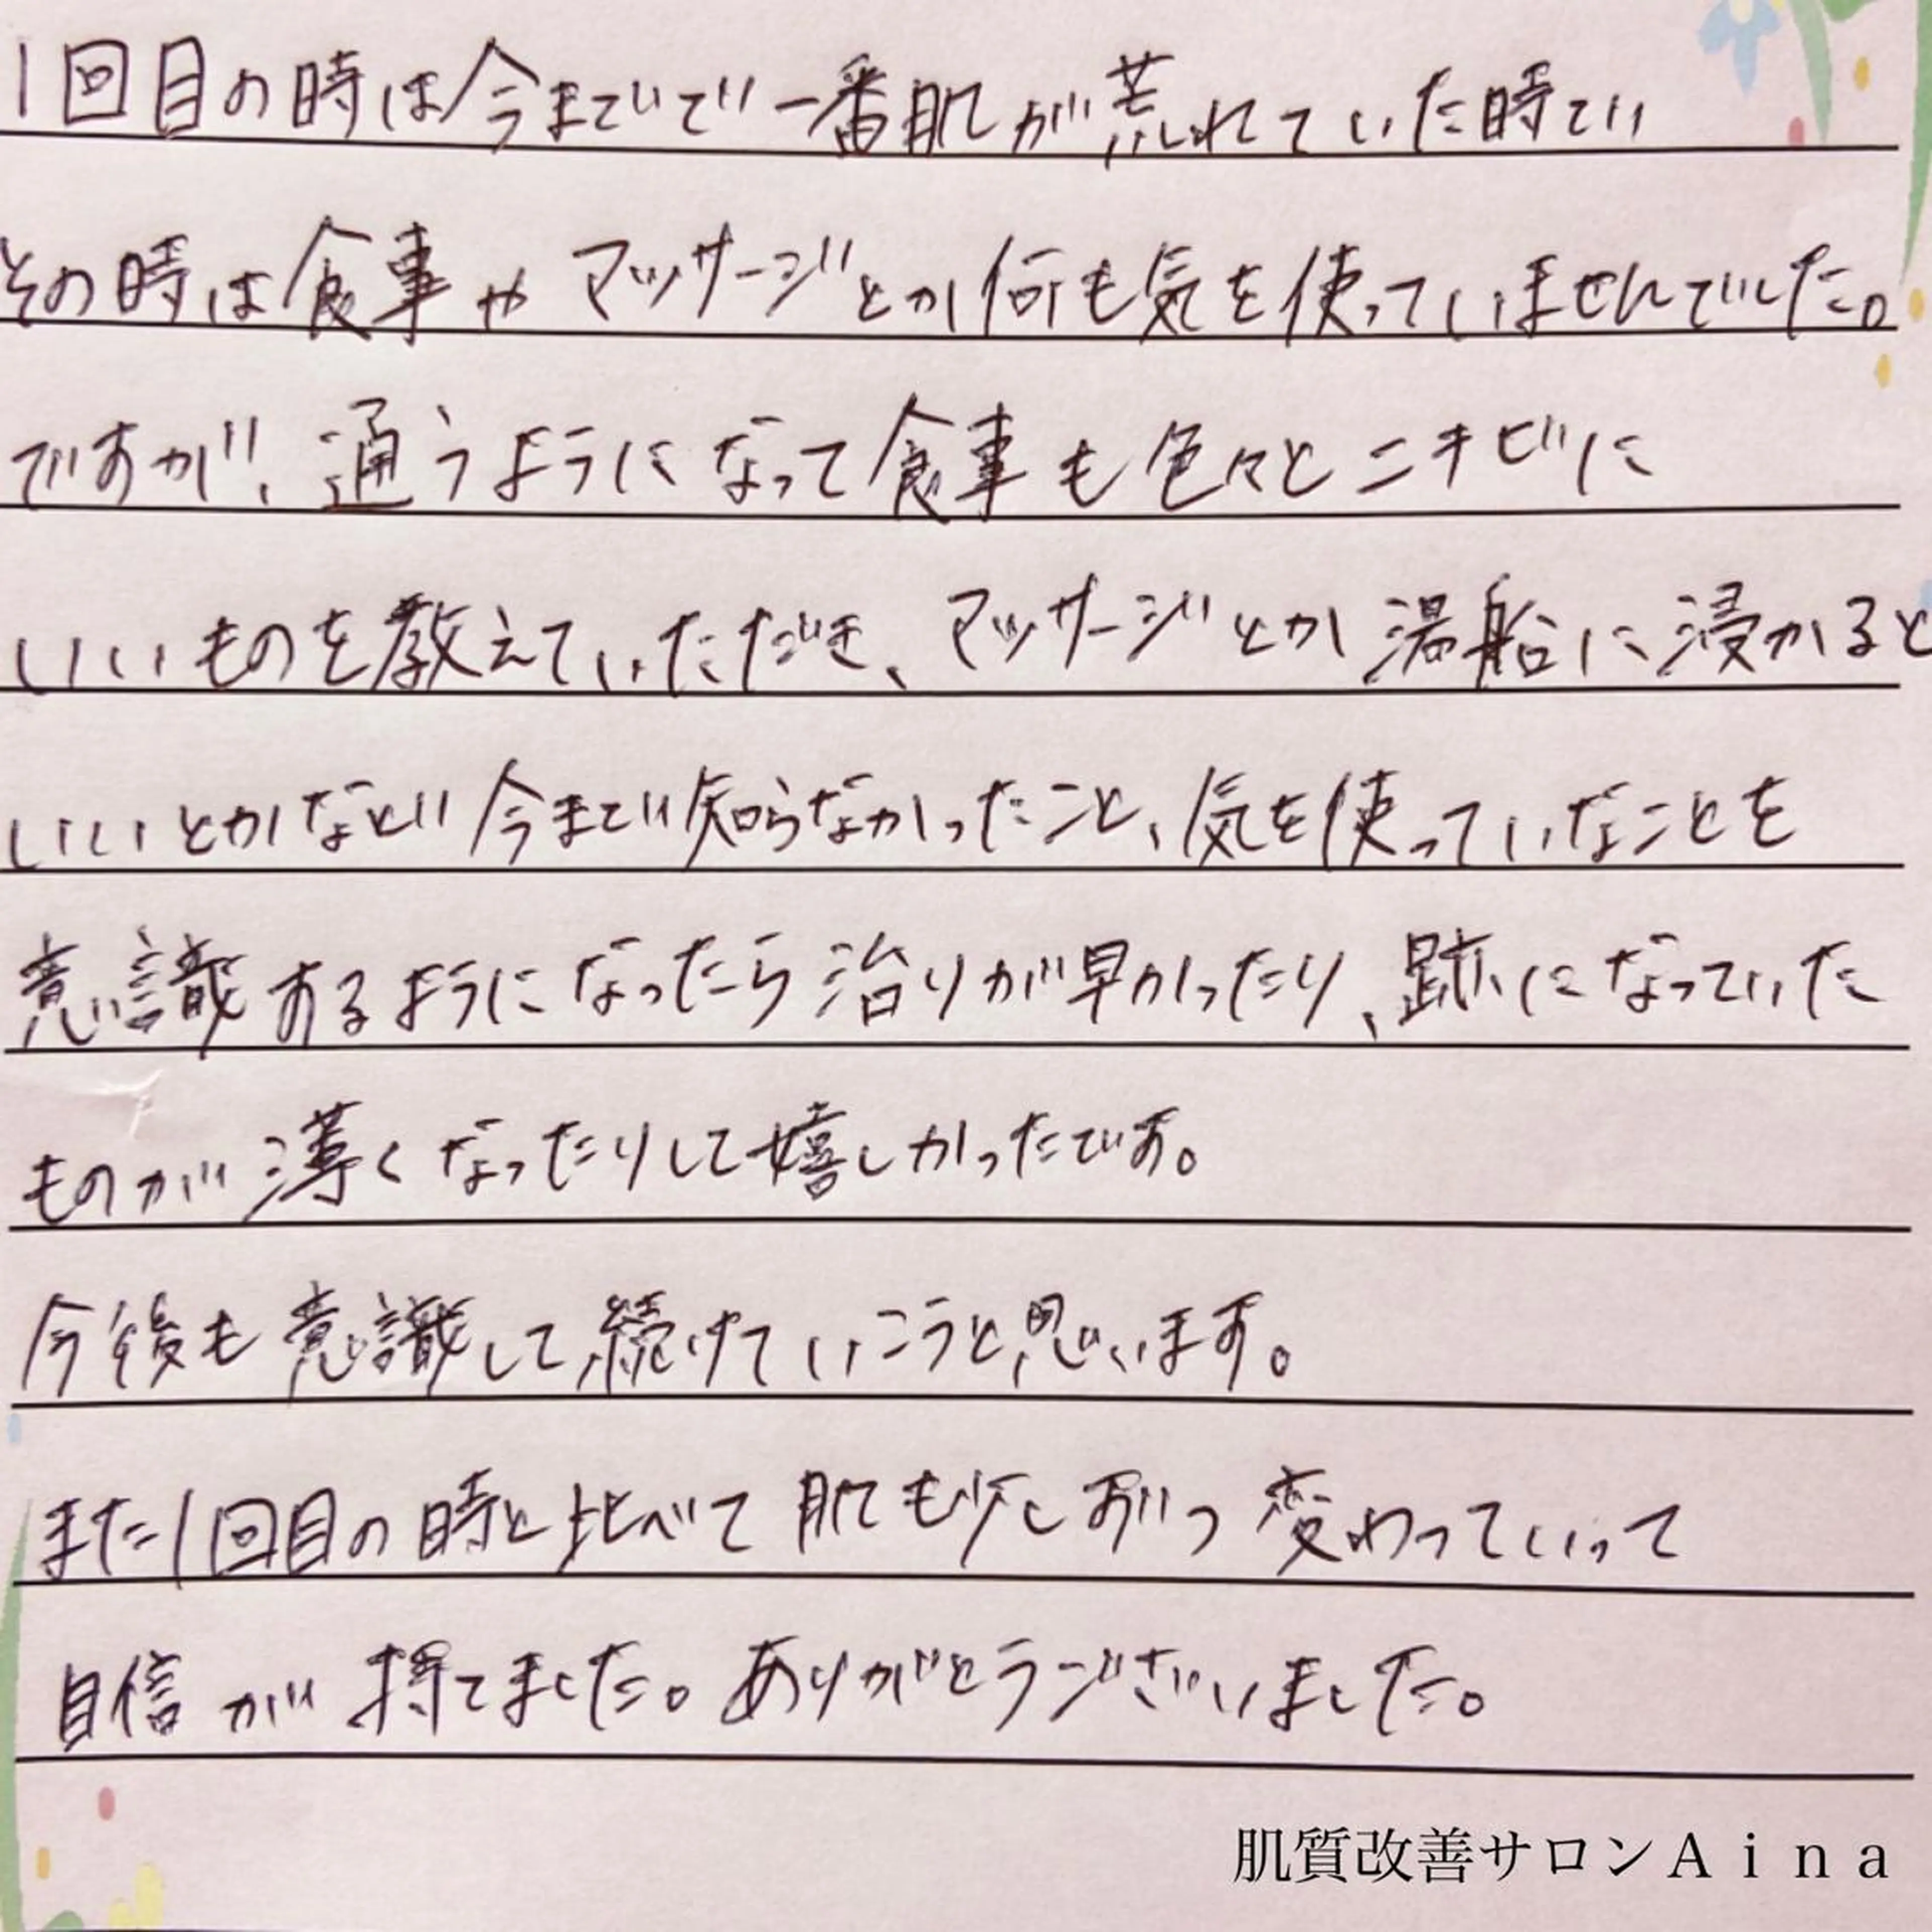 1回目の時は今までで一番肌が荒れていた時で
その時は食事やマッサージとか何も気を使っていませんでした。
ですが、通うようになって食事も色々とニキビに
いいものを教えていただき、マッサージとか湯船に浸かると
いいとかなど今まで知らなかったこと、気を使っていなことを
意識するようになったら治りが早かったり、跡になっていた
ものが薄くなったりして嬉しかったです。
今後も意識して続けていこうと思います。
また1回目の時と比べて肌も少しずつ変わっていって
自信が持てました。ありがとうございました。
肌質改善サロンAina